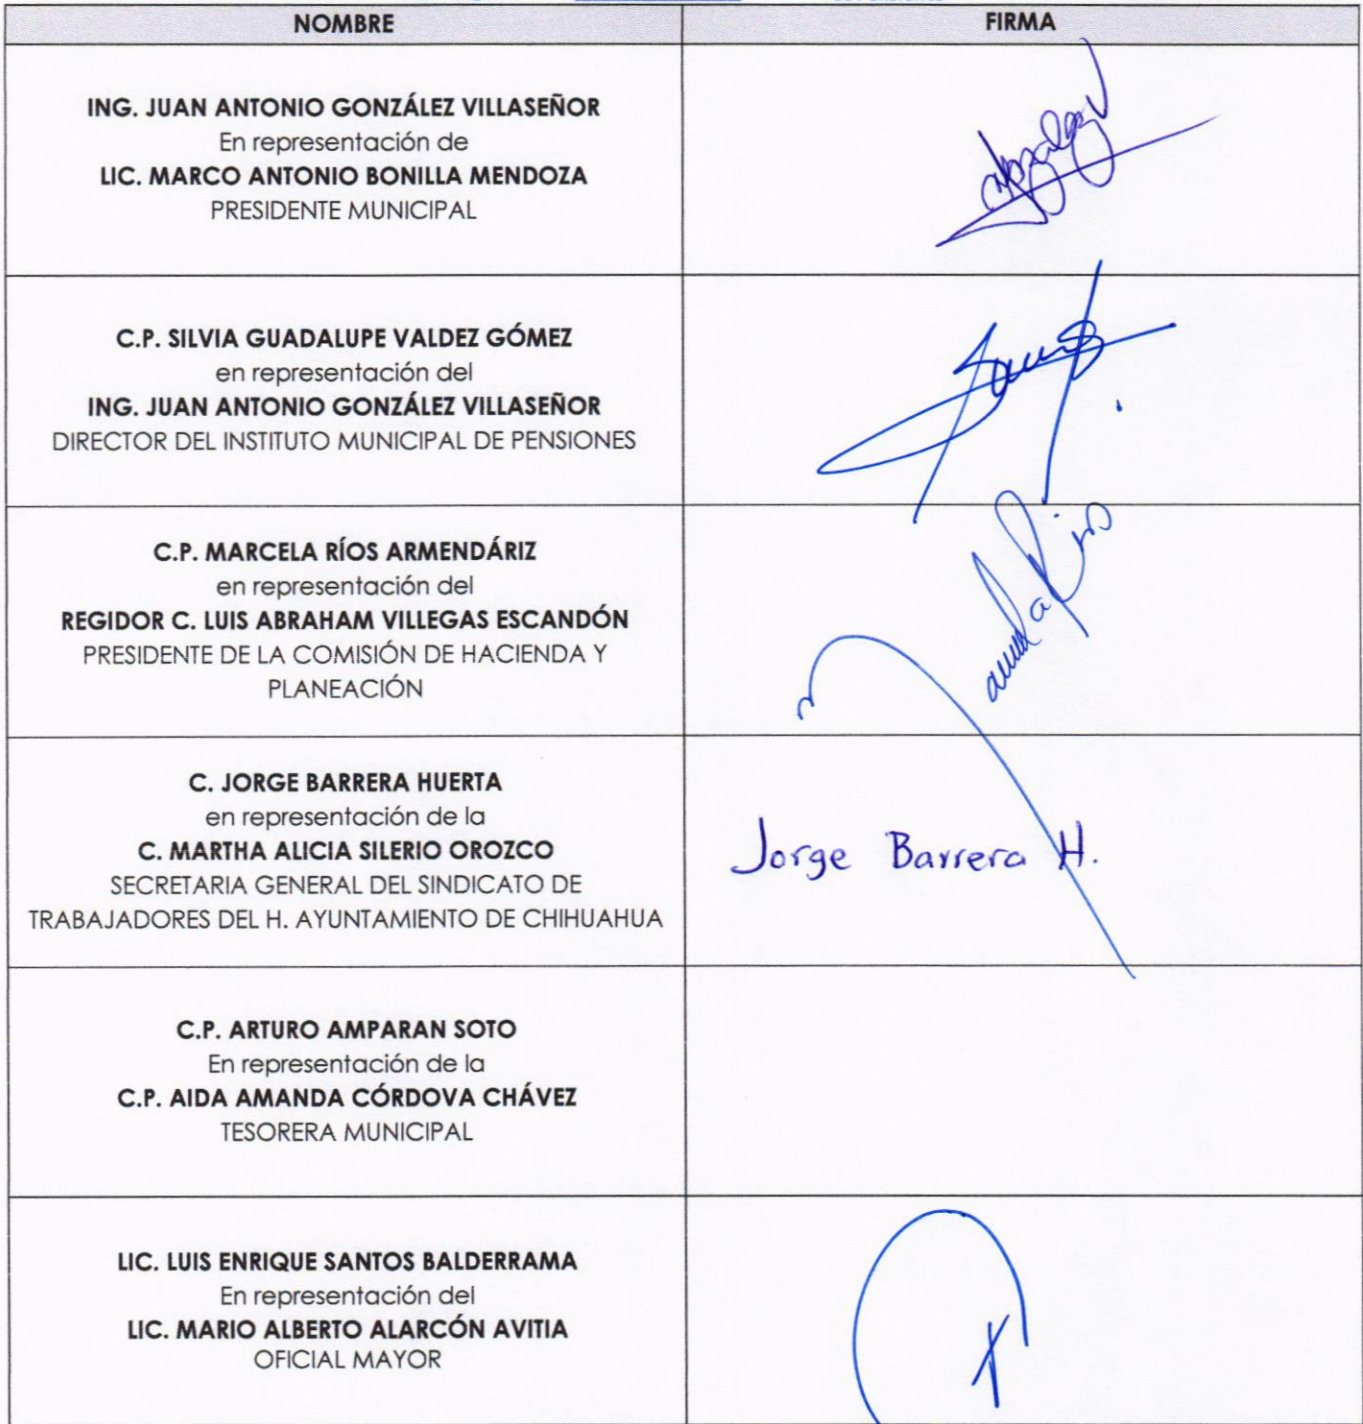 NOMBRE
FIRMA
ING. JUAN ANTONIO GONZÁLEZ VILLASEÑOR
En representación de
LIC. MARCO ANTONIO BONILLA MENDOZA
PRESIDENTE MUNICIPAL
C.P. SILVIA GUADALUPE VALDEZ GÓMEZ
en representación del
ING. JUAN ANTONIO GONZÁLEZ VILLASEÑOR
DIRECTOR DEL INSTITUTO MUNICIPAL DE PENSIONES
C.P. MARCELA RÍOS ARMENDÁRIZ
en representación del
REGIDOR C. LUIS ABRAHAM VILLEGAS ESCANDÓN
PRESIDENTE DE LA COMISIÓN DE HACIENDA Y
PLANEACIÓN
C. JORGE BARRERA HUERTA
en representación de la
C. MARTHA ALICIA SILERIO OROZCO
SECRETARIA GENERAL DEL SINDICATO DE
TRABAJADORES DEL H. AYUNTAMIENTO DE CHIHUAHUA
Jorge Barrera H.
C.P. ARTURO AMPARAN SOTO
En representación de la
C.P. AIDA AMANDA CÓRDOVA CHÁVEZ
TESORERA MUNICIPAL
LIC. LUIS ENRIQUE SANTOS BALDERRAMA
En representación del
LIC. MARIO ALBERTO ALARCÓN AVITIA
OFICIAL MAYOR